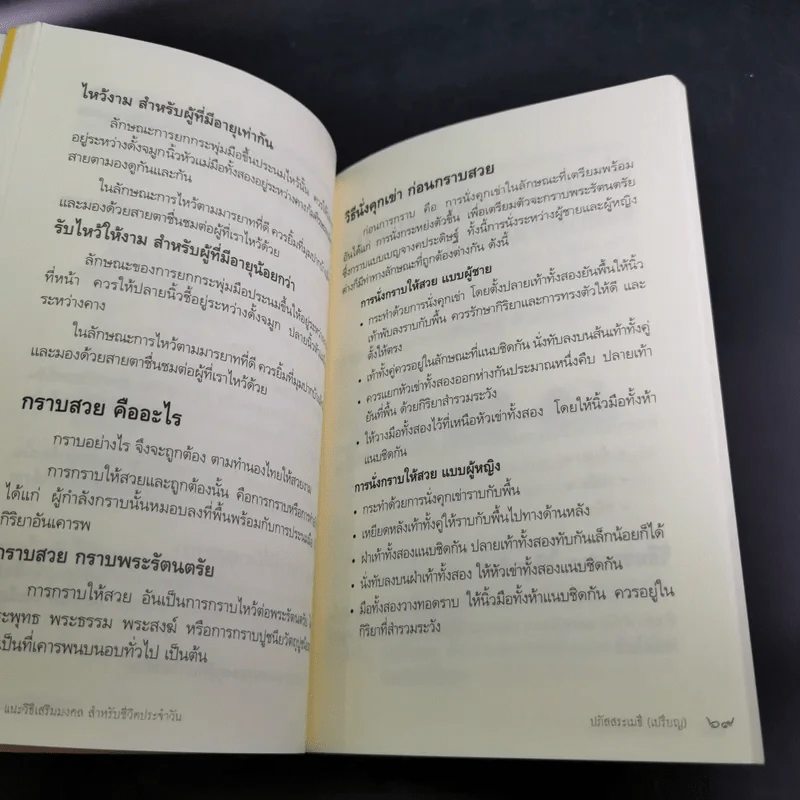 ไหว้งาม สำหรับผู้ที่มีอายุเท่ากัน
ลักษณะการยกกระพุ่มมือขึ้นประนมไหว้นั้น ควรให้
อยู่ระหว่างดั้งจมูกนิ้วหัวแม่มือทั้งสองอยู่ระหว่างคางก้ม
สายตามองดูกันและกัน
ในลักษณะการไหว้ตามมารยาทที่ดี ควรยิ้มที่มุมปาก
และมองด้วยสายตาชื่นชมต่อผู้ที่เราไหว้ด้วย
รับไหว้ให้งาม สำหรับผู้ที่มีอายุน้อยกว่า
ลักษณะของการยกกระพุ่มมือประนมขึ้นให้อยู่ระหว่าง
ที่หน้า ควรให้ปลายนิ้วชี้อยู่ระหว่างดั้งจมูก ปลายนิ้ว
ระหว่างคาง
ในลักษณะการไหว้ตามมารยาทที่ดี ควรยิ้มที่มุมปาก
และมองด้วยสายตาชื่นชมต่อผู้ที่เราไหว้ด้วย
กราบสวย คืออะไร
กราบอย่างไร จึงจะถูกต้อง ตามทำนองไทยให้สวยงาม
การกราบให้สวยและถูกต้องนั้น คือการกราบหรือการ
ได้แก่ ผู้กำลังกราบนั้นหมอบลงที่พื้นพร้อมกับการประนมมือ
กิริยาอันเคารพ
กราบสวย กราบพระรัตนตรัย
การกราบให้สวย อันเป็นการกราบไหว้ต่อพระรัตนตรัย
พระพุทธ พระธรรม พระสงฆ์ หรือการกราบปูชนียวัตถุ
เป็นที่เคารพนบนอบทั่วไป เป็นต้น
แนะวิธีเสริมมงคล สำหรับชีวิตประจำวัน
วิธีนั่งคุกเข่า ก่อนกราบสวย
ก่อนการกราบ คือ การนั่งคุกเข่าในลักษณะที่เตรียมพร้อม
อันได้แก่ การนั่งกระหย่งตัวขึ้น เพื่อเตรียมตัวจะกราบพระรัตนตรัย
ซึ่งกราบแบบเบญจางคประดิษฐ์ ทั้งนี้การนั่งระหว่างผู้ชายและผู้หญิง
ต่างก็มีท่าทางลักษณะที่ถูกต้องต่างกัน ดังนี้
การนั่งกราบให้สวย แบบผู้ชาย
• กระทำด้วยการนั่งคุกเข่า โดยตั้งปลายเท้าทั้งสองยันพื้นให้นิ้ว
เท้าพับลงราบกับพื้น ควรรักษากิริยาและการทรงตัวให้ดี และ
ตั้งให้ตรง
• เท้าทั้งคู่ควรอยู่ในลักษณะที่แนบชิดกัน นั่งทับลงบนส้นเท้าทั้งคู่
• ควรแยกหัวเข่าทั้งสองออกห่างกันประมาณหนึ่งคืบ ปลายเท้า
ยันที่พื้น ด้วยกิริยาสำรวมระวัง
• ให้วางมือทั้งสองไว้ที่เหนือหัวเข่าทั้งสอง โดยให้นิ้วมือทั้งห้า
แนบชิดกัน
การนั่งกราบให้สวย แบบผู้หญิง
• กระทำด้วยการนั่งคุกเข่าราบกับพื้น
• เหยียดหลังเท้าทั้งคู่ให้ราบกับพื้นไปทางด้านหลัง
• ฝ่าเท้าทั้งสองแนบชิดกัน ปลายเท้าทั้งสองทับกันเล็กน้อยก็ได้
• นั่งทับลงบนฝ่าเท้าทั้งสอง ให้หัวเข่าทั้งสองแนบชิดกัน
• มือทั้งสองวางทอดราบ ให้นิ้วมือทั้งห้าแนบชิดกัน ควรอยู่ใน
กิริยาที่สำรวมระวัง
ปภัสสระเมธี (เปรียญ) ๖๙